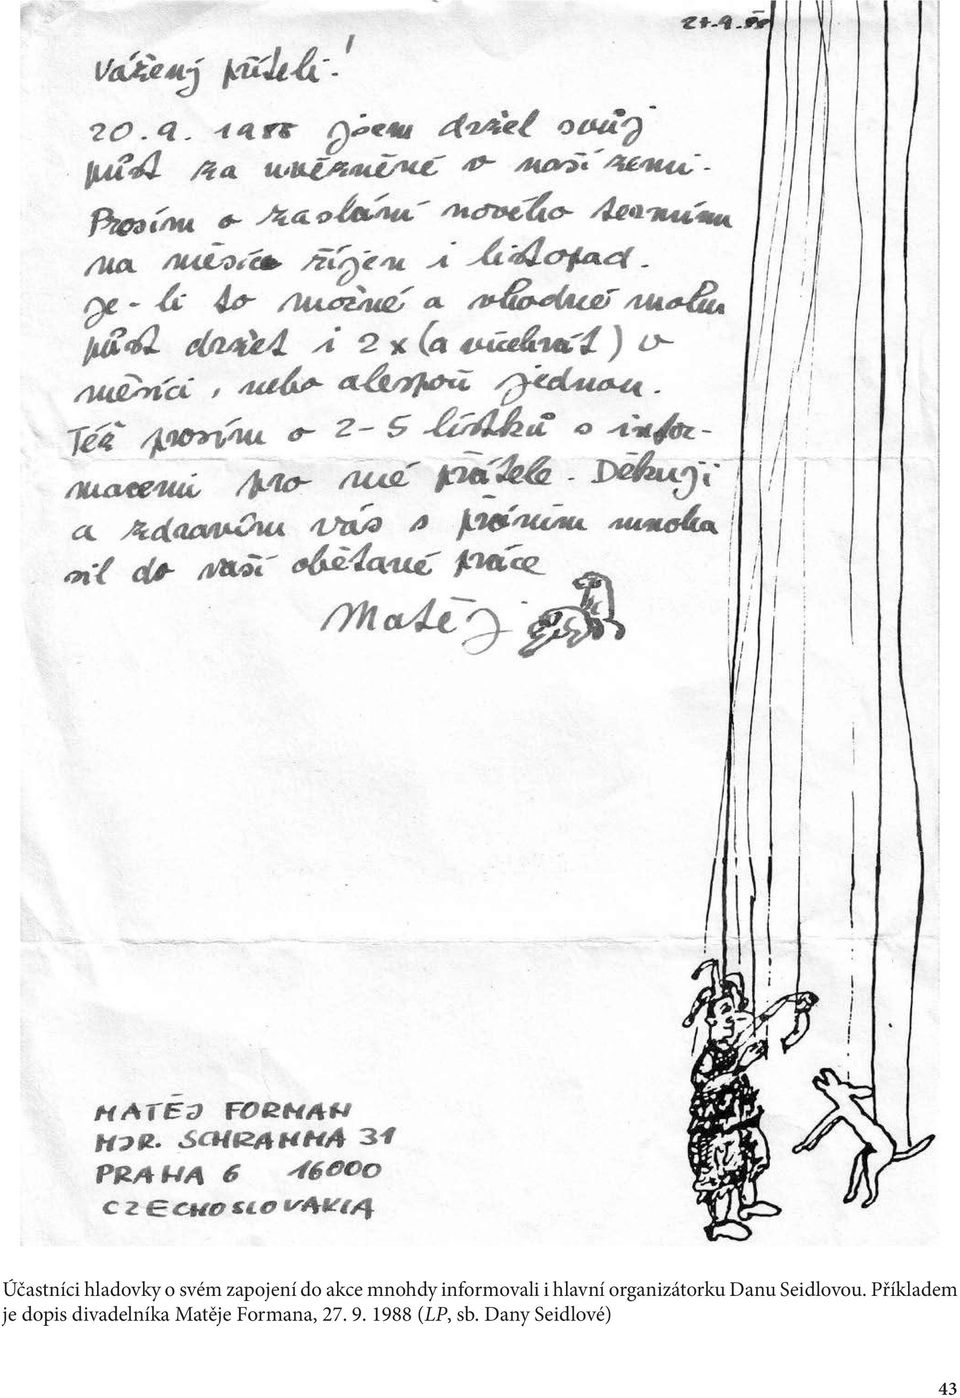 27.9.88
Vážený příteli!
20.9. 1988 jsem držel svůj
půst za uvězněné v naší zemi.
Prosím o zaslání nového termínu
na měsíce říjen i listopad.
Je-li to možné a vhodné mohu
půst držet i 2x (a vícekrát) v
měsíci, nebo alespoň jednou.
Též prosím o 2-5 lístků s infor-
macemi pro mé přátele. Děkuji
a zdravím vás s přáním mnoha
sil do vaší obětavé práce
Matěj
MATĚJ FORMAN
MJR. SCHRAMMA 31
PRAHA 6 16000
CZECHOSLOVAKIA
Účastníci hladovky o svém zapojení do akce mnohdy informovali i hlavní organizátorku Danu Seidlovou. Příkladem
je dopis divadelníka Matěje Formana, 27. 9. 1988 (LP, sb. Dany Seidlové)
43